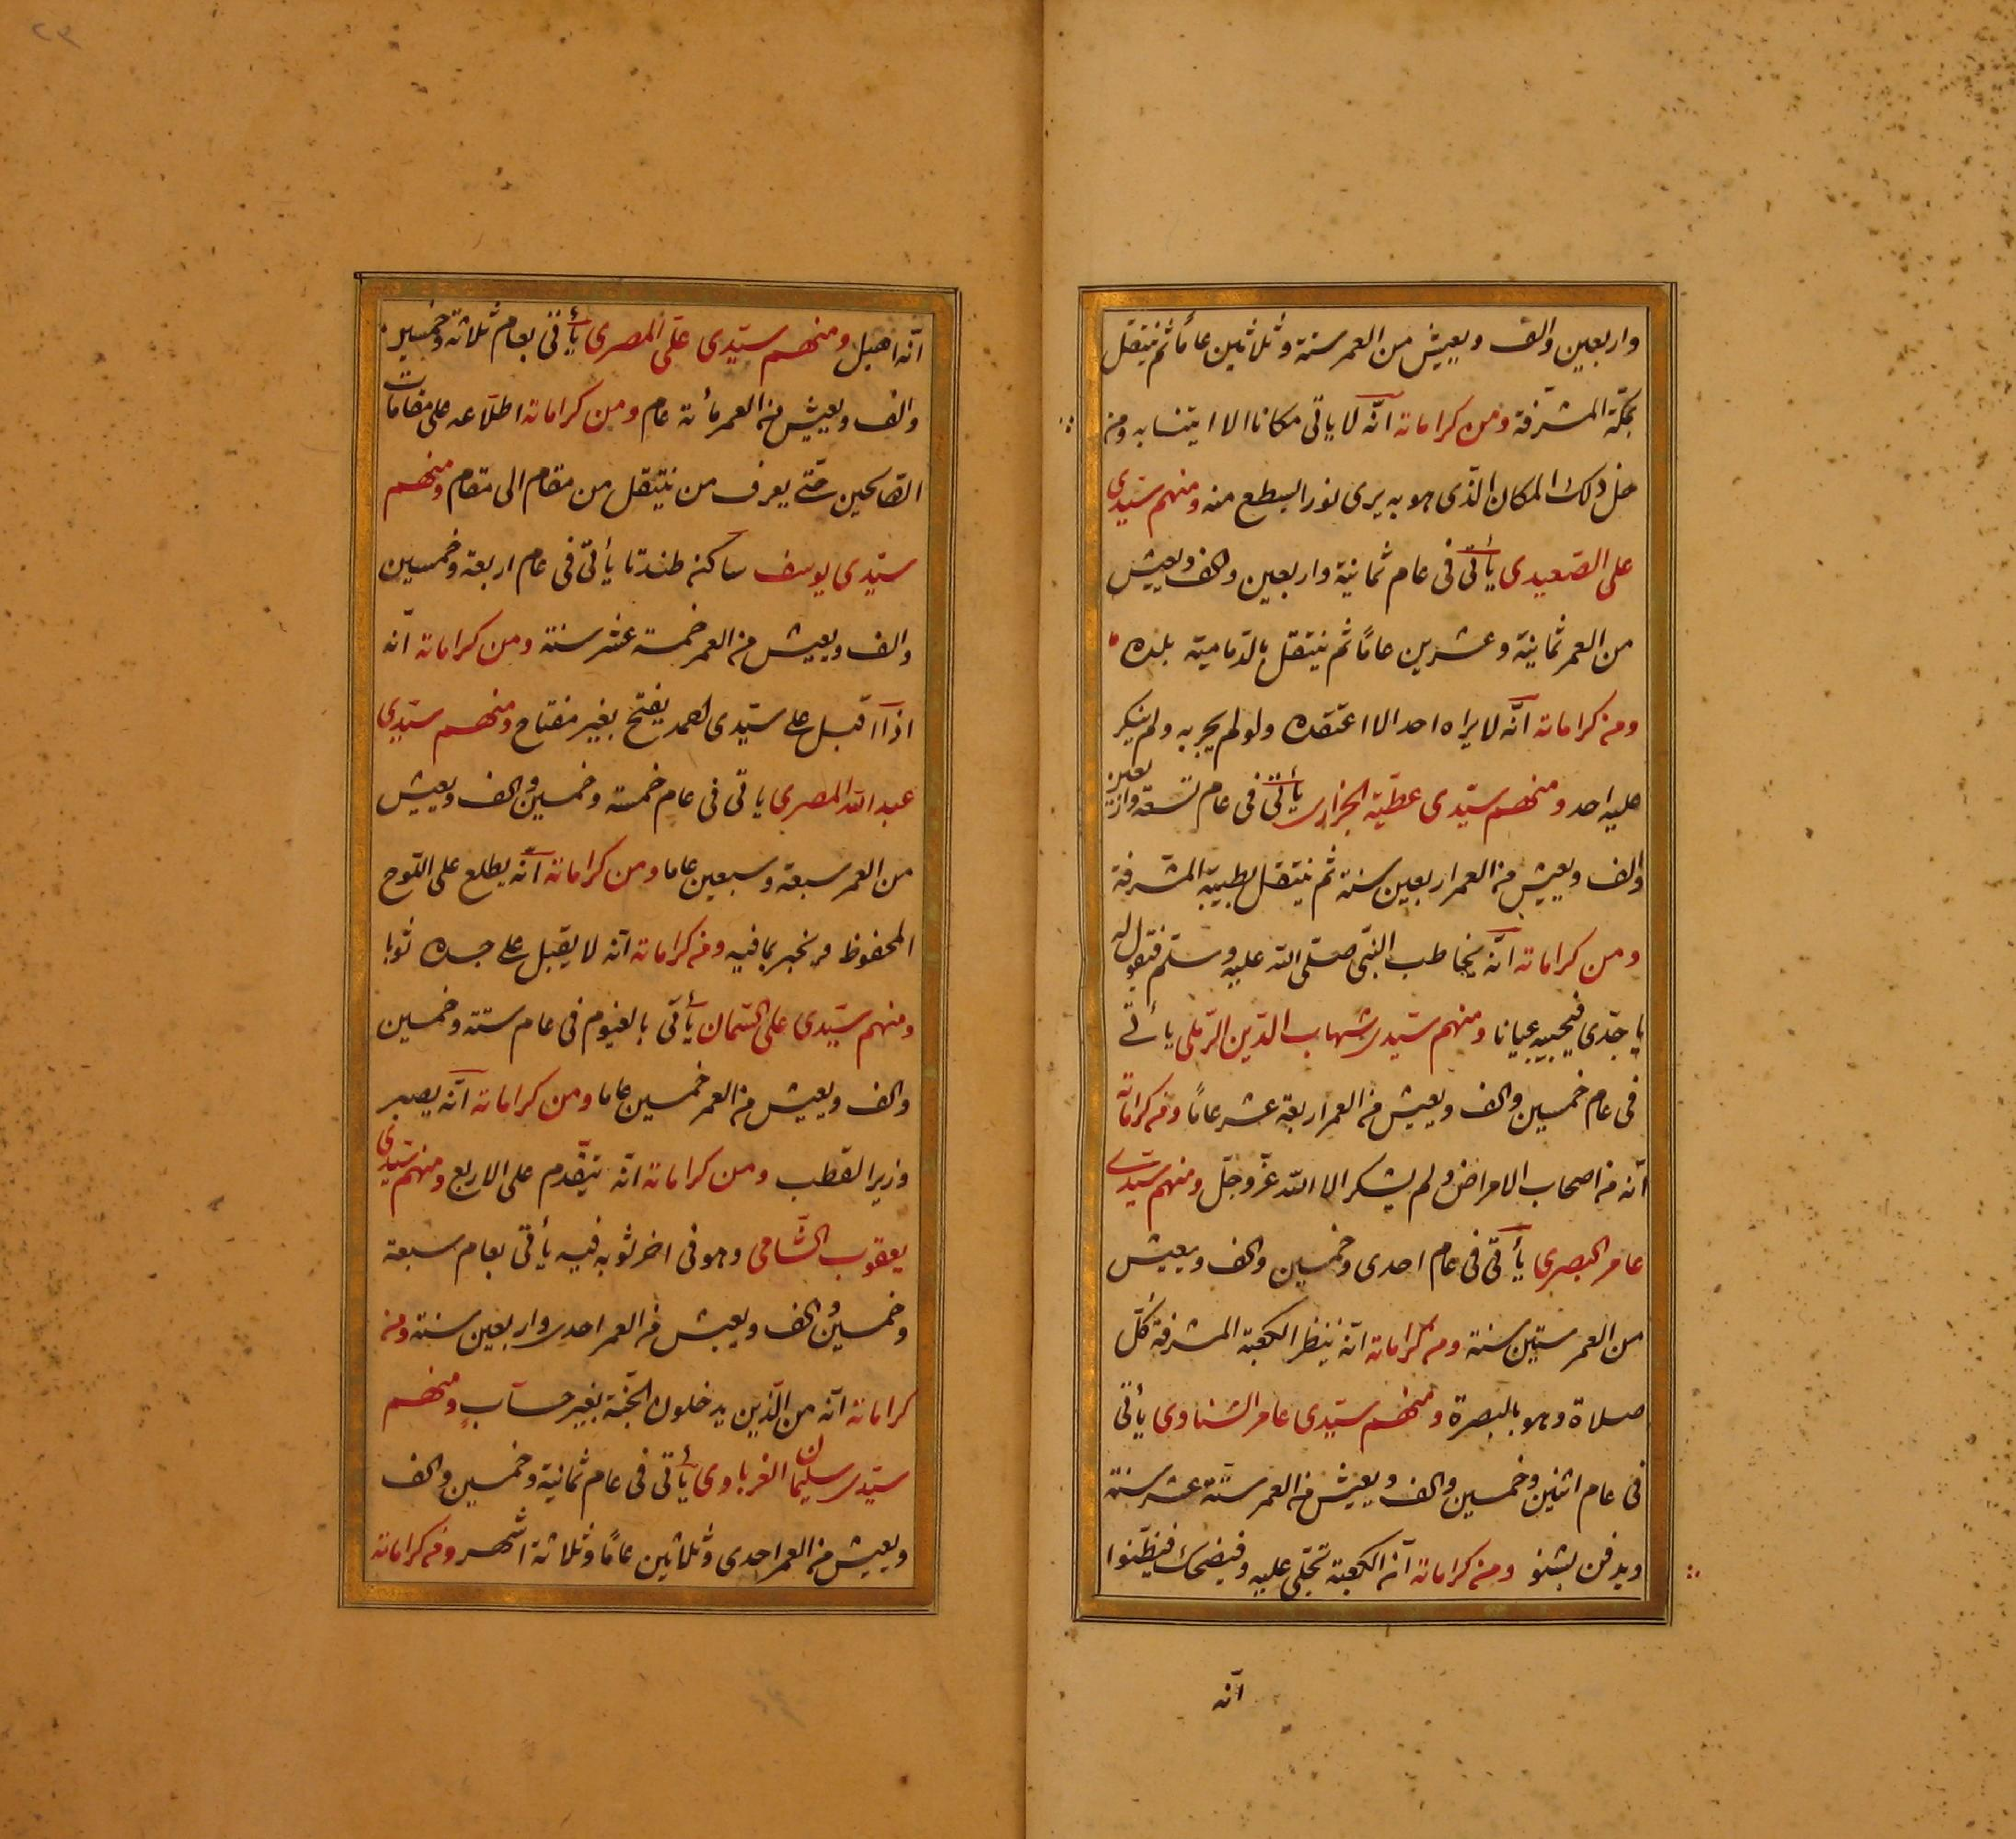 واربعين والف ويعيش من العمر ستة وثلاثين عاماً ثم ينتقل
بمكّة المشرّفة ومن كراماته انّه لا ياتى مكانا الا ايتنسا به ومن
خل ذلك المكان الذى هو به يرى نورا يسطع منه ومنهم سيّدي
على الصّعيدى يأتى فى عام ثمانية واربعين والف ويعيش
من العمر ثمانية وعشرين عامًا ثم ينتقل بالدّماميّة بلده
ومن كراماته انّه لا يراه احد الا اعتقده ولو لم يجر به ولم ينكر
عليه احد ومنهم سيّدى عطيّة الجزارى يأتى فى عام تسعة واربعين
والف ويعيش من العمر اربعين سنة ثم ينتقل بطيبة المشرفة
ومن كراماته انّه يخاطب النبّى صلّى الله عليه وسلّم فيقول له
يا جدّى فيجيبه عيانا ومنهم سيّدى شهاب الدّين الرّملى يأتى
فى عام خمسين والف ويعيش من العمر اربعة عشر عامًا ومن كراماته
انّه من اصحاب الامراض ولم يشكر الا الله عزّ وجلّ ومنهم سيّدى
عامر البصرى يأتى فى عام احدى وخمسين والف ويعيش
من العمر ستين سنة ومن كراماته انّه ينظر الكعبة المشرفة كلّ
صلاة وهو بالبصرة ومنهم سيّدى عامر الشناوى يأتى
فى عام اثنين وخمسين والف ويعيش من العمر ستّة عشر سنة
ويدفن بشنو ومن كراماته انّ الكعبة تجلّى عليه وفيضحك فيظنّوا
انّه
انّه اهبل ومنهم سيّدى علىّ المصرى يأتى بعام ثلاثة وخمسين
والف ويعيش من العمر مأئة عام ومن كراماته اطلّاعه على مقامات
الصّالحين حتّى يعرف من ينتقل من مقام الى مقام ومنهم
سيّدى يوسف ساكنه طندتا يأتى فى عام اربعة وخمسين
والف ويعيش من العمر خمسة عشر سنة ومن كراماته انّه
اذا اقبل على سيّدى احمد يفتح بغير مفتاح ومنهم سيّدي
عبد الله المصرى ياتى فى عام خمسة وخمسين والف ويعيش
من العمر سبعة وسبعين عاما ومن كراماته انّه يطلع على اللّوح
المحفوظ ويخبر بما فيه ومن كراماته انّه لا يقبل على جسده ثوبا
ومنهم سيّدى على السّمان يأتى بالفيوم فى عام ستة وخمسين
والف ويعيش من العمر خمسين عاما ومن كراماته انّه يصير
وزير القطب ومن كراماته انّه يتقّدم على الاربع ومنهم سيّدي
يعقوب الشّامى وهو فى اخر ثوبه فيه يأتى بعام سبعة
وخمسين والف ويعيش من العمر احدى واربعين سنة ومن
كراماته انّه من الّذين يدخلون الجّنة بغير حساب ومنهم
سيّدى سليمان الغرباوى يأتى فى عام ثمانية وخمسين والف
ويعيش من العمر احدى وثلاثين عامًا وثلاثة اشهر ومن كراماته